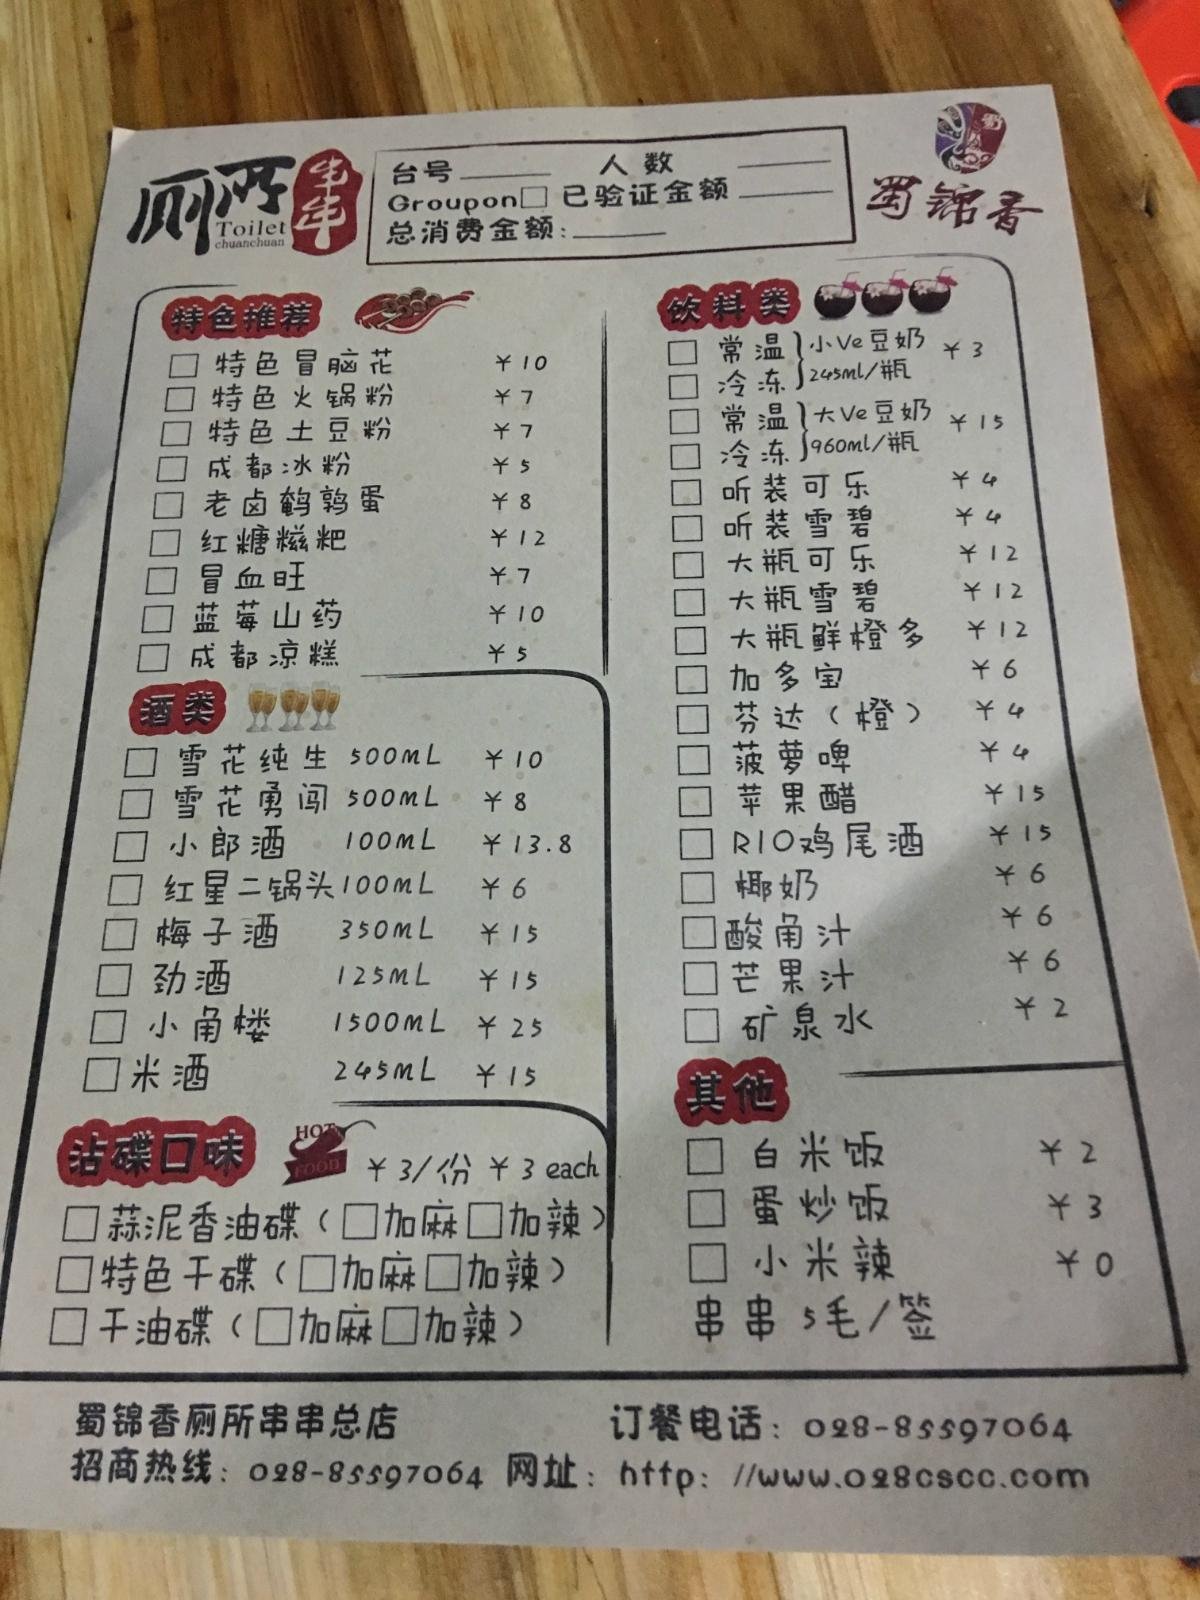 厕所串串
Toilet
chuanchuan
台号______ 人数 ______
Groupon□ 已验证金额______
总消费金额:______
蜀
蜀锦香
特色推荐
□ 特色冒脑花 ¥10
□ 特色火锅粉 ¥7
□ 特色土豆粉 ¥7
□ 成都冰粉 ¥5
□ 老卤鹌鹑蛋 ¥8
□ 红糖糍粑 ¥12
□ 冒血旺 ¥7
□ 蓝莓山药 ¥10
□ 成都凉糕 ¥5
酒类
□ 雪花纯生 500mL ¥10
□ 雪花勇闯 500mL ¥8
□ 小郎酒 100mL ¥13.8
□ 红星二锅头 100mL ¥6
□ 梅子酒 350mL ¥15
□ 劲酒 125mL ¥15
□ 小角楼 1500mL ¥25
□ 米酒 245mL ¥15
沾碟口味
HOT
FOOD
¥3/份 ¥3 each
□ 蒜泥香油碟(□加麻□加辣)
□ 特色干碟(□加麻□加辣)
□ 干油碟(□加麻□加辣)
饮料类
□ 常温 小Ve豆奶 ¥3
□ 冷冻 245ml/瓶
□ 常温 大Ve豆奶 ¥15
□ 冷冻 960ml/瓶
□ 听装可乐 ¥4
□ 听装雪碧 ¥4
□ 大瓶可乐 ¥12
□ 大瓶雪碧 ¥12
□ 大瓶鲜橙多 ¥12
□ 加多宝 ¥6
□ 芬达(橙) ¥4
□ 菠萝啤 ¥4
□ 苹果醋 ¥15
□ RIO鸡尾酒 ¥15
□ 椰奶 ¥6
□ 酸角汁 ¥6
□ 芒果汁 ¥6
□ 矿泉水 ¥2
其他
□ 白米饭 ¥2
□ 蛋炒饭 ¥3
□ 小米辣 ¥0
串串 5毛/签
蜀锦香厕所串串总店 订餐电话:028-85597064
招商热线:028-85597064 网址:http://www.028cscc.com